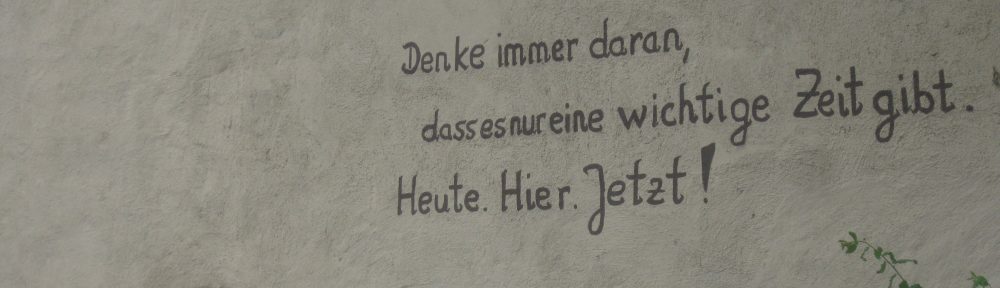 Denke immer daran,
dass es nur eine wichtige Zeit gibt.
Heute. Hier. Jetzt!